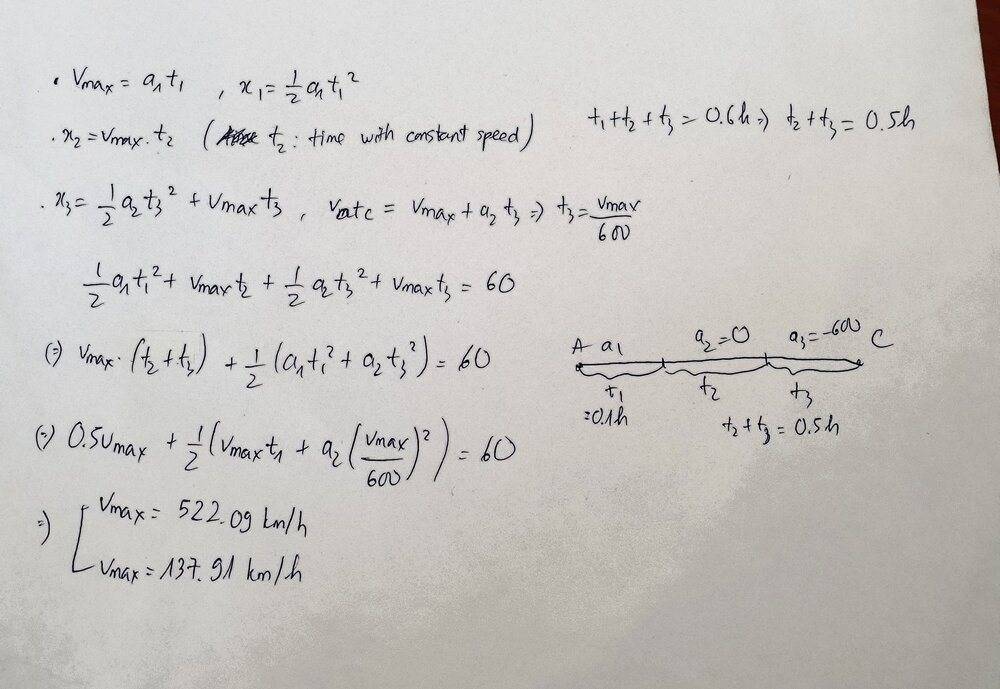 • Vmax = a₁t₁ , x₁ = 1/2 a₁t₁²
. x₂ = Vmax . t₂ ( t₂ : time with constant speed)
t₁ + t₂ + t₃ = 0.6h => t₂ + t₃ = 0.5h
. x₃ = 1/2 a₂t₃² + Vmax t₃ , Vatc = Vmax + a₂ t₃ => t₃ = Vmax/600
1/2 a₁t₁² + Vmax t₂ + 1/2 a₂t₃² + Vmax t₃ = 60
(=) Vmax . (t₂ + t₃) + 1/2 (a₁t₁² + a₂t₃²) = 60
(=) 0.5Vmax + 1/2 (Vmax t₁ + a₂ (Vmax/600)²) = 60
=) [ Vmax = 522.09 km/h
Vmax = 137.91 km/h
A a₁ a₂=0 a₃=-600 C
t₁ t₂ t₃
=0.1h t₂ + t₃ = 0.5h